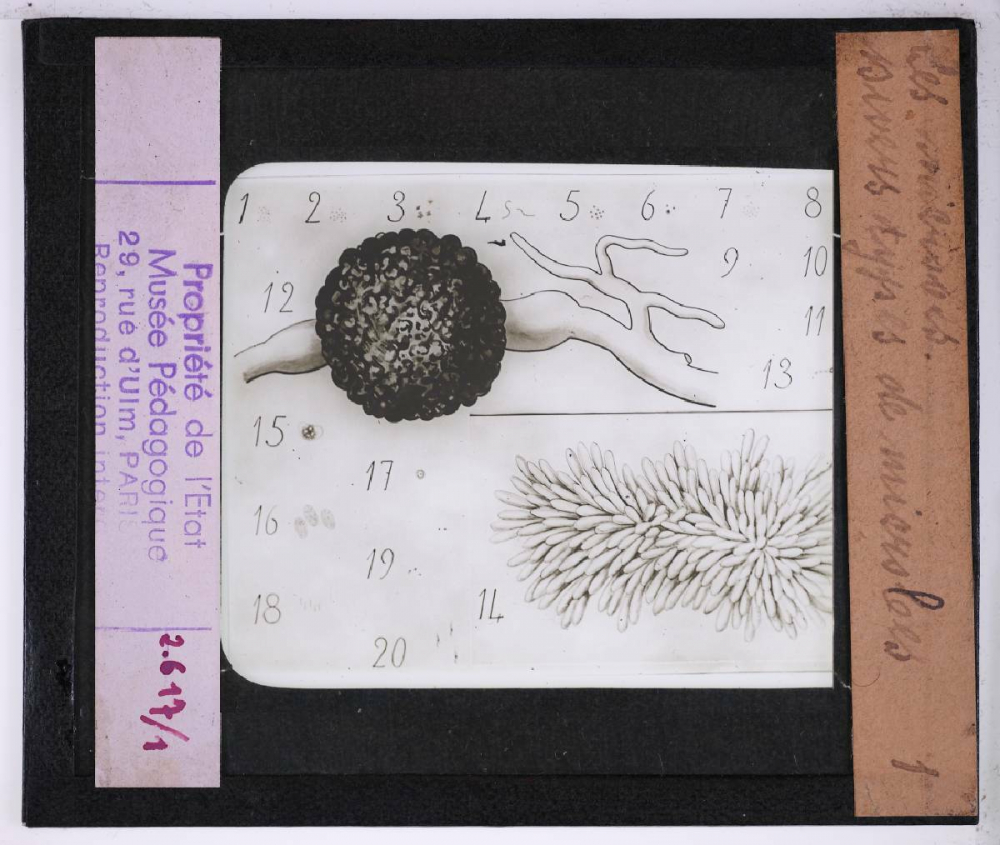 Propriété de l'Etat
Musée Pédagogique
29, rue d'Ulm, PARIS
Reproduction inter
2.617/1
1 2 3 4 5 6 7 8
9 10
12
11
13
15
17
16
19
14
18
20
Les
divers types de microbes
1